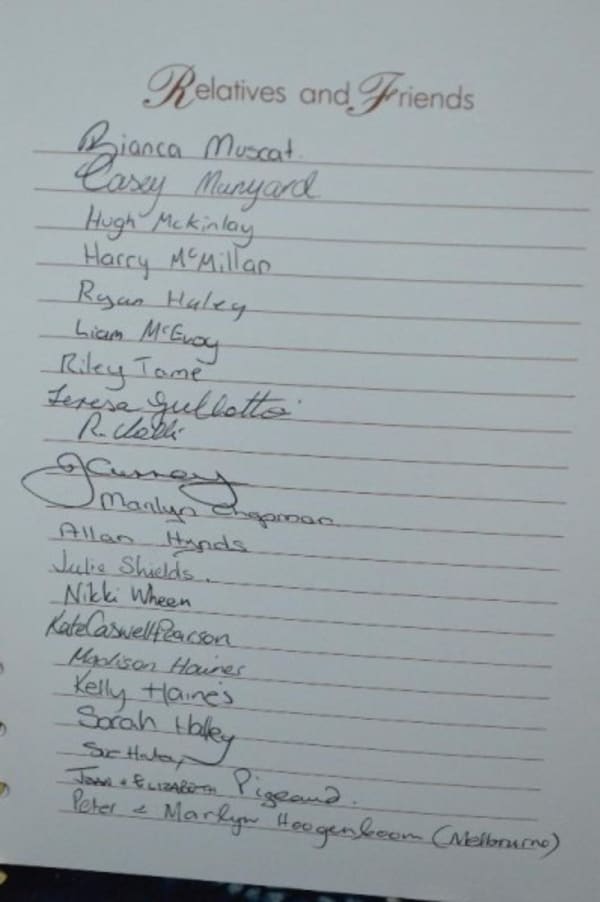 Relatives and Friends
Bianca Muscat.
Casey Manyard
Hugh McKinlay
Harry McMillan
Ryan Haley
Liam McEvoy
Riley Tame
Teresa Gullotta
R.
G Curray
Marilyn Chapman
Allan Hynds
Julie Shields.
Nikki Wheen
Kate Caswell Pearson
Madison Haines
Kelly Haines
Sarah Halley
Sue
& ELIZABETH Pigeaud.
Peter & Marilyn Hoogenboom (Melbourne)